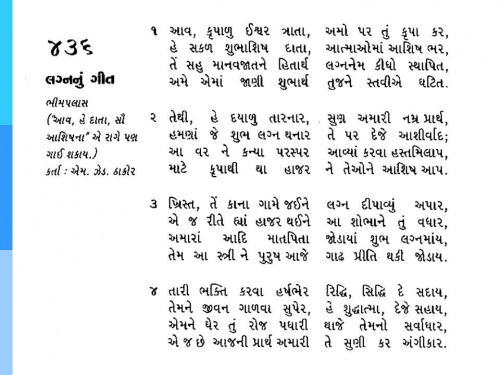 ૪૩૬
લગ્નનું ગીત
ભીમપલાસ
('આવ, હે દાતા, સૌ
આશિષના' એ રાગે પણ
ગાઈ શકાય.)
કર્તા : એમ. ઝેડ. ઠાકોર
૧ આવ, કૃપાળુ ઈશ્વર ત્રાતા, અમો પર તું કૃપા કર,
હે સકળ શુભાશિષ દાતા, આત્માઓમાં આશિષ ભર,
તેં સહુ માનવજાતને હિતાર્થ લગ્નનેમ કીધો સ્થાપિત,
અમે એમાં જાણી શુભાર્થ તુજને સ્તવીએ ઘટિત.
૨ તેથી, હે દયાળુ તારનાર, સુણ અમારી નમ્ર પ્રાર્થ,
હમણાં જે શુભ લગ્ન થનાર તે પર દેજે આશીર્વાદ;
આ વર ને કન્યા પરસ્પર આવ્યાં કરવા હસ્તમિલાપ,
માટે કૃપાથી થા હાજર ને તેઓને આશિષ આપ.
૩ ખ્રિસ્ત, તેં કાના ગામે જઈને લગ્ન દીપાવ્યું અપાર,
એ જ રીતે હ્યાં હાજર થઈને આ શોભાને તું વધાર,
અમારાં આદિ માતપિતા જોડાયાં શુભ લગ્નમાંય,
તેમ આ સ્ત્રી ને પુરુષ આજે ગાઢ પ્રીતિ થકી જોડાય.
૪ તારી ભક્તિ કરવા હર્ષભેર રિદ્ધિ, સિદ્ધિ દે સદાય,
તેમને જીવન ગાળવા સુપેર, હે શુદ્ધાત્મા, દેજે સહાય,
એમને ઘેર તું રોજ પધારી થાજે તેમનો સર્વાધાર,
એ જ છે આજની પ્રાર્થ અમારી તે સુણી કર અંગીકાર.